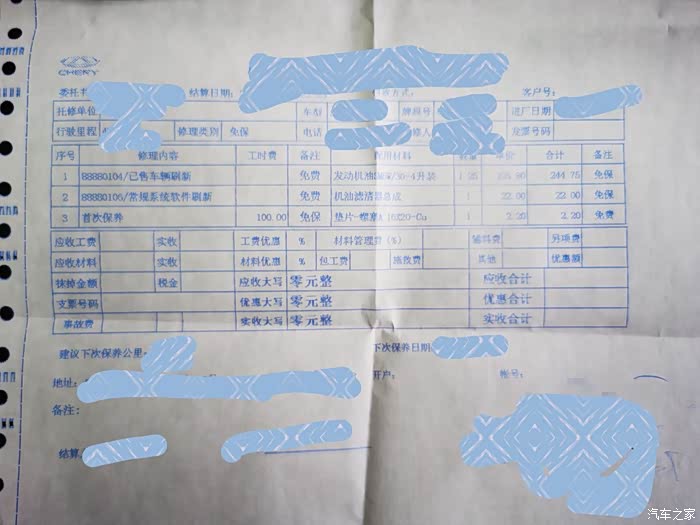 CHERY
结算日期: 客户号:
托修单位 车型 牌照号 进厂日期
行驶里程 修理类别 免保 电话 修人 发票号码
序号 修理内容 工时费 备注 用材料 数量 单价 合计 备注
1 88880104/已售车辆刷新 免费 发动机油 -4升装 1.25 244.75 免保
2 88880105/常规系统软件刷新 免费 机油滤清器总成 1 22.00 22.00 免保
3 首次保养 100.00 免保 垫片-螺塞A 16X20-Cu 1 2.20 2.20 免费
应收工费 实收 工费优惠 % 材料管理费(%) 辅料费 另项费
应收材料 实收 材料优惠 % 包工费 施救费 其他 优惠额
抹掉金额 税金 应收大写 零元整 应收合计
支票号码 优惠大写 零元整 优惠合计
事故费 实收大写 零元整 实收合计
建议下次保养公里: 下次保养日期:
地址: 开户: 帐号:
备注:
结算
汽车之家